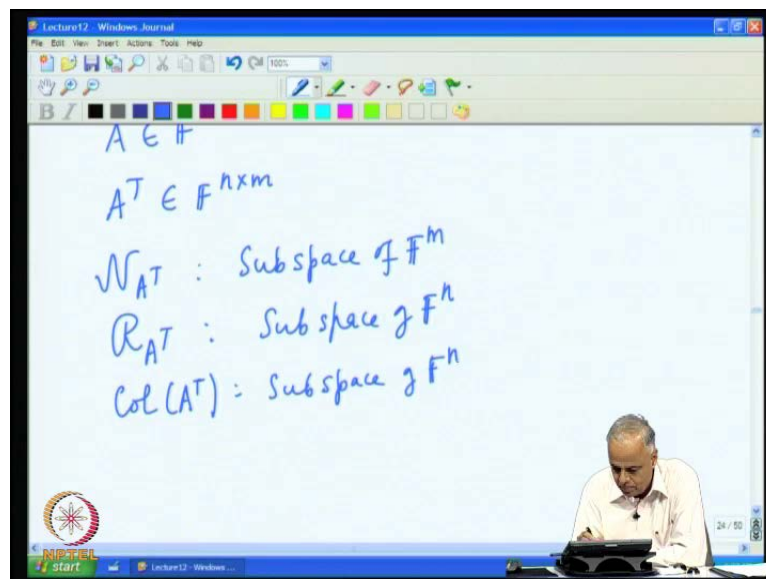 Lecture12 - Windows Journal
File Edit View Insert Actions Tools Help
100%
B I
A ∈ F
Aᵀ ∈ Fⁿˣᵐ
N_Aᵀ : Subspace of Fᵐ
R_Aᵀ : Subspace of Fⁿ
Col (Aᵀ) : Subspace of Fⁿ
24 / 50
NPTEL
start Lecture12 - Windows ...